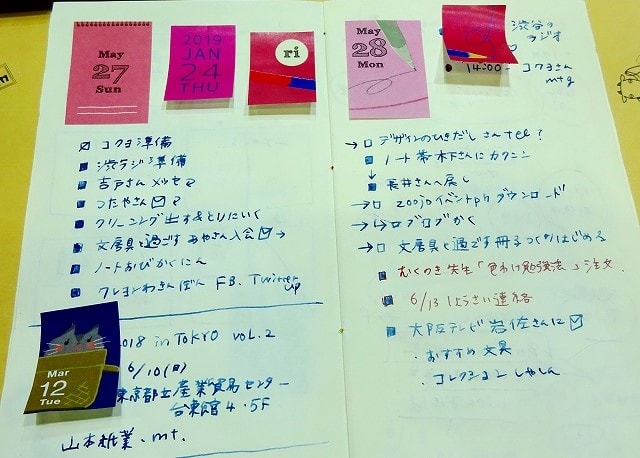 May
27
Sun
2019
JAN
24
THU
ri
コクヨ準備
渋ラジ準備
吉戸さんメッセ
つたやさん
クリーニング出す&とりにいく
文房具と過ごす あやさん入会 →
ノートおびかくにん
クレヨンわさんぼん FB. Twitter
up
Mar
12
Tue
2018 in TOKYO vol.2
6/10(日)
東京都立産業貿易センター
台東館4.5F
山本紙業.mt.
May
28
Mon
渋谷の
ラジオ
14:00- コクヨさん
mtg
→ デザインのひきだしさんtel?
ノート帯木下さんにカクニン
↓
長井さんへ戻し
→ ダウンロード
→ ブログかく
→ 文房具と過ごす冊子つくりはじめる
むくのき先生「色わけ勉強法」注文
6/13 しょうさい連絡
大阪テレビ 岩佐さんに
・おすすめ文具
・コレクションしゃしん